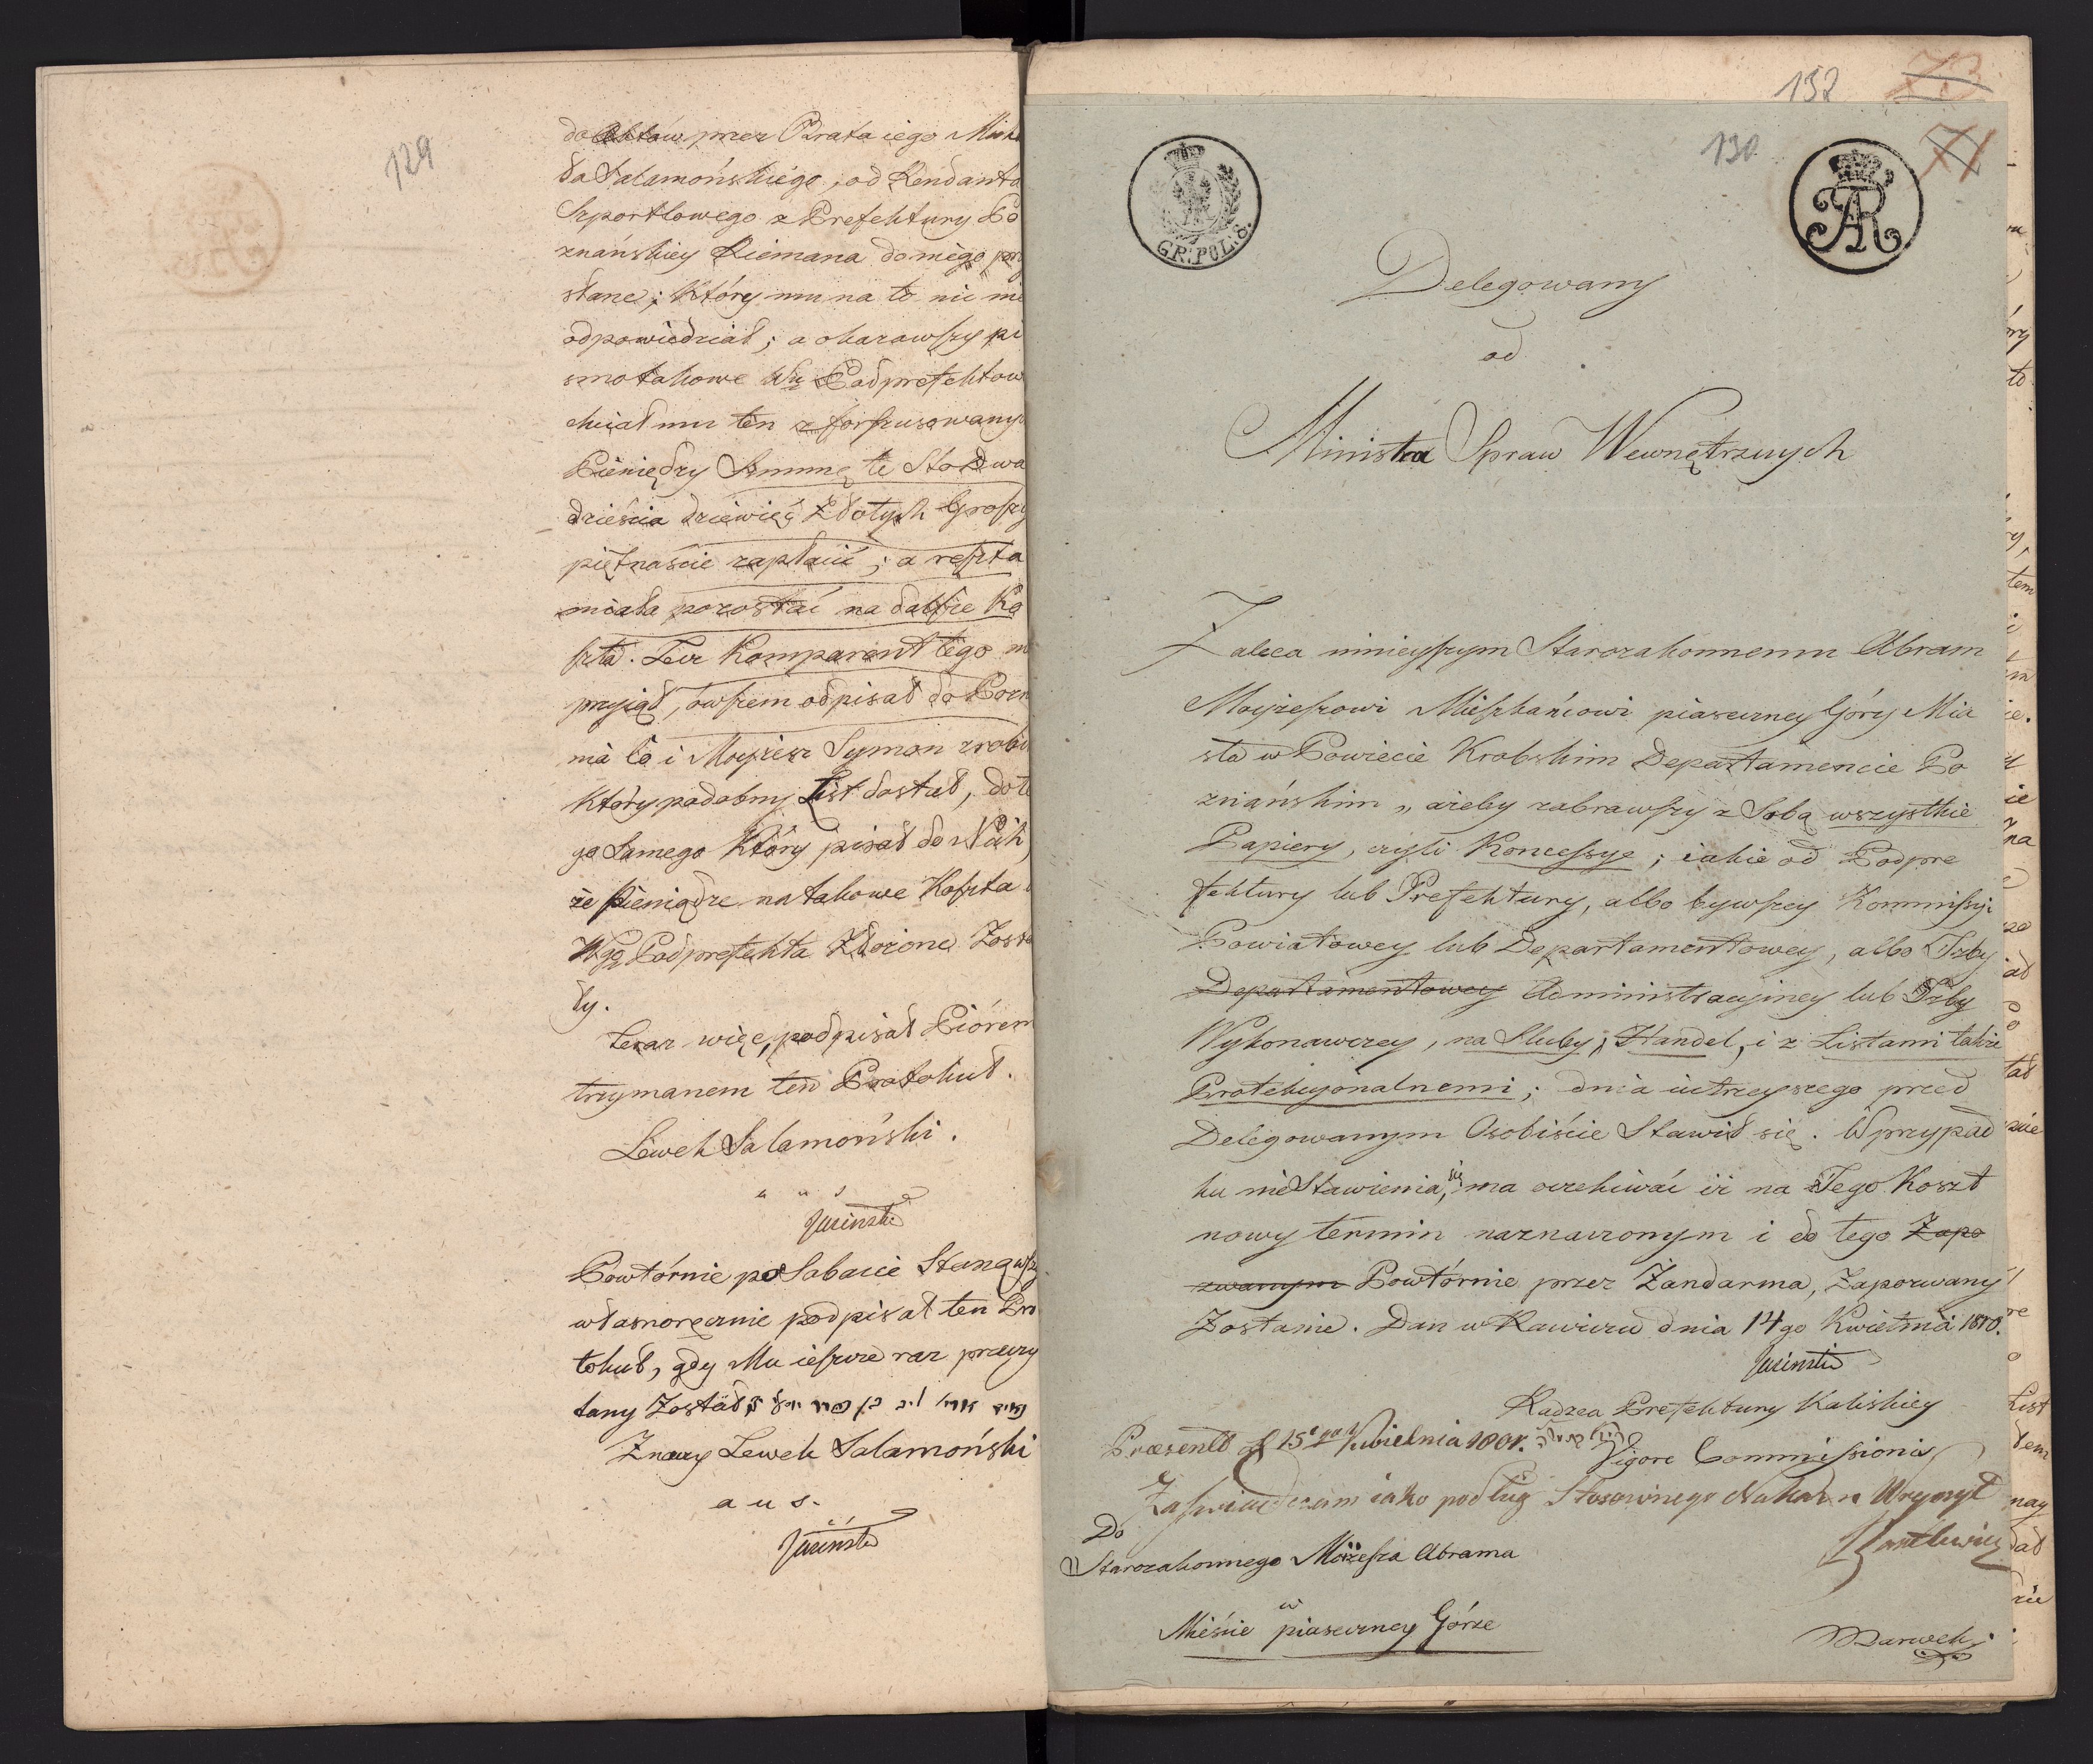 129
do Aktów przez Brata iego Micha
ła Salamońskiego, od Rendanta
Szportlowego z Prefektury Po
znańskiey Riemana do niego prze
słane; który mu na to nic nie
odpowiedział; a okazawszy pi
smo takowe Wu Podprefektow
chciał mu ten z forszusowanych
Pieniędzy Summę te Sto dwa
dzieścia dziewięć Złotych Groszy
piętnaście zapłacić; a reszta
miała pozostać na dalsze Ko
szta. Lecz Komparent tego nie
przyiął, owszem odpisał do Pozn
nia to i Moyżesz Symon zrobił
który podobny List dostał, do te
go Samego który pisał do Nich,
że Pieniądze na takowe Koszta
Wgo Podprefekta Złożone Zosta
ły.
Teraz więc, podpisał Piórem
trzymanem ten Protokuł.
Lewek Salamoński.
a u s
Jusinski
Powtórnie po Sabacie Stanąwszy
własnoręcznie podpisał ten Pro
tokuł, gdy Mu ieszcze raz przeczy
tany Został
Znaczy Lewek Salamoński
a u s.
Jusinski
132
73
130
71
GR: POL: 8.
AR
Delegowany
od
Ministra Spraw Wewnętrznych
Zaleca ninieyszym Starozakonnemu Abram
Moyżeszowi Mieszkańcowi piaseczney Góry Mia
sta w Powiecie Krobskim Departamencie Po
znańskim, ażeby zabrawszy z Sobą wszystkie
Papiery, czyli Koncessye; iakie od Podpre
fektury lub Prefektury, albo bywszey Kommissyi
Powiatowey lub Departamentowey, albo Izby
Departamentowey Administracyiney lub Izby
Wykonawczey, na Śluby, Handel, i z Listami także
Protekcyonalnemi; dnia iutrzeyszego przed
Delegowanym Osobiście Stawił się. W przypad
ku nie Stawienia, się ma oczekiwać iż na Jego Koszt
nowy termin naznaczonym i do tego Zapo
zwanym Powtórnie przez Żandarma, Zapozwany
Zostanie. Dan w Rawiczu dnia 14go Kwietnia 1810.
Jusinski
Radzca Prefektury Kaliskiey
Vigore Commissionis
Zaświadczam iako podług Stosownego Nakazu Wręczył
Do
Starozakonnego Moiżesza Abrama
w
Mieście piaseczney Górze